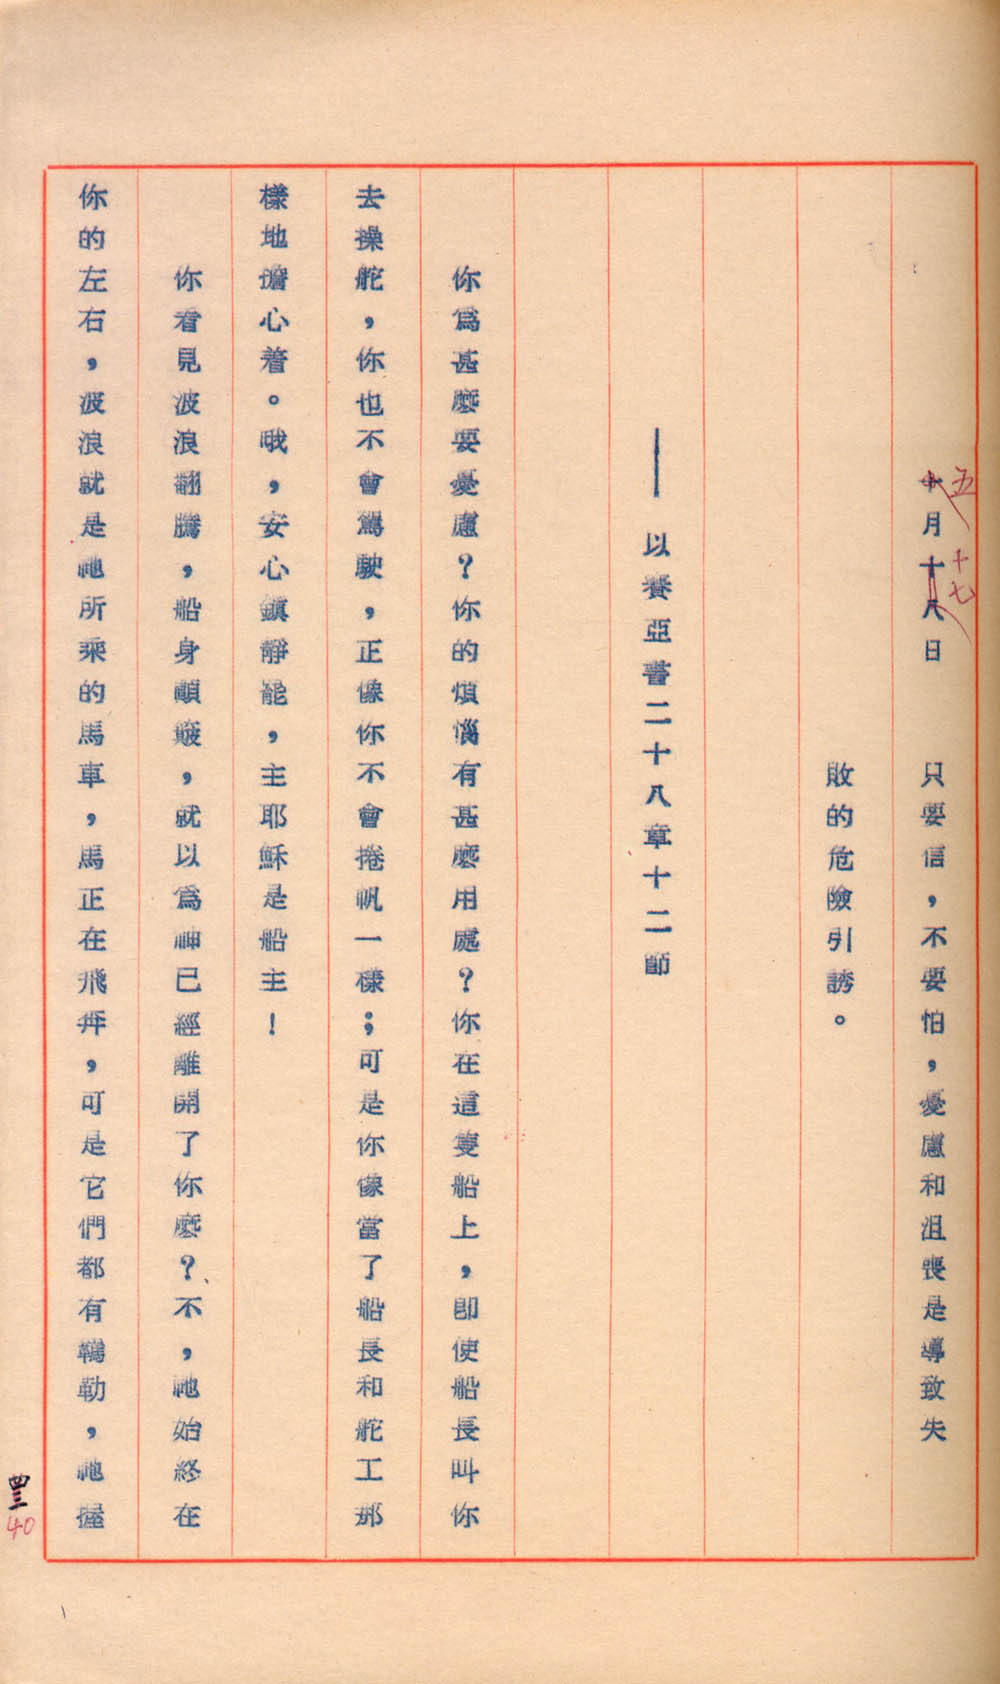 十月十八日　只要信，不要怕，憂慮和沮喪是導致失
五　十七
敗的危險引誘。
——以賽亞書二十八章十二節
你爲甚麼要憂慮？你的煩惱有甚麼用處？你在這隻船上，卽使船長叫你
去操舵，你也不會駕駛，正像你不會捲帆一樣；可是你像當了船長和舵工那
樣地擔心着。哦，安心鎮靜罷，主耶穌是船主！
你看見波浪翻騰，船身顚簸，就以爲神已經離開了你麼？不，祂始終在
你的左右，波浪就是祂所乘的馬車，馬正在飛奔，可是它們都有羈勒，祂握
四三
40